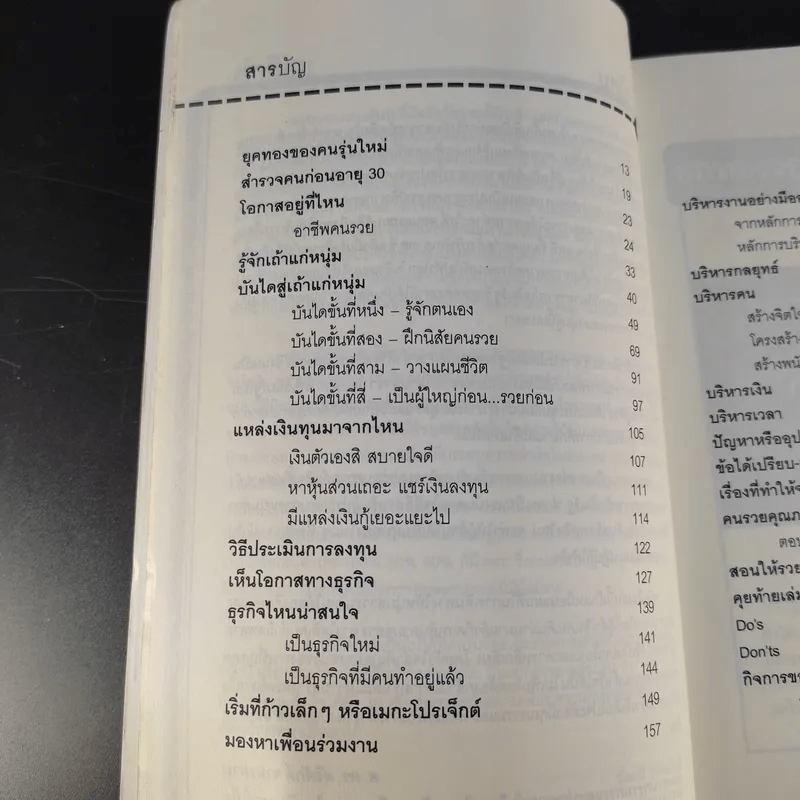 สารบัญ
ยุคทองของคนรุ่นใหม่ 13
สำรวจคนก่อนอายุ 30 19
โอกาสอยู่ที่ไหน 23
อาชีพคนรวย 24
รู้จักเถ้าแก่หนุ่ม 33
บันไดสู่เถ้าแก่หนุ่ม 40
บันไดขั้นที่หนึ่ง – รู้จักตนเอง 49
บันไดขั้นที่สอง – ฝึกนิสัยคนรวย 69
บันไดขั้นที่สาม – วางแผนชีวิต 91
บันไดขั้นที่สี่ – เป็นผู้ใหญ่ก่อน...รวยก่อน 97
แหล่งเงินทุนมาจากไหน 105
เงินตัวเองสิ สบายใจดี 107
หาหุ้นส่วนเถอะ แชร์เงินลงทุน 111
มีแหล่งเงินกู้เยอะแยะไป 114
วิธีประเมินการลงทุน 122
เห็นโอกาสทางธุรกิจ 127
ธุรกิจไหนน่าสนใจ 139
เป็นธุรกิจใหม่ 141
เป็นธุรกิจที่มีคนทำอยู่แล้ว 144
เริ่มที่ก้าวเล็กๆ หรือเมกะโปรเจ็กต์ 149
มองหาเพื่อนร่วมงาน 157
บริหารงานอย่างมือ
จากหลักการ
หลักการบริ
บริหารกลยุทธ์
บริหารคน
สร้างจิตใ
โครงสร้า
สร้างพนั
บริหารเงิน
บริหารเวลา
ปัญหาหรืออุป
ข้อได้เปรียบ-
เรื่องที่ทำให้
คนรวยคุณภ
ตอน
สอนให้รวย
คุยท้ายเล่ม
Do's
Don'ts
กิจการขอ